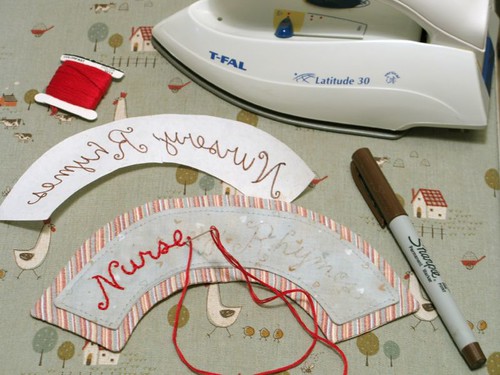 T-FAL
Latitude 30
Nursery Rhymes
Nurse Rhymes
Sharpie